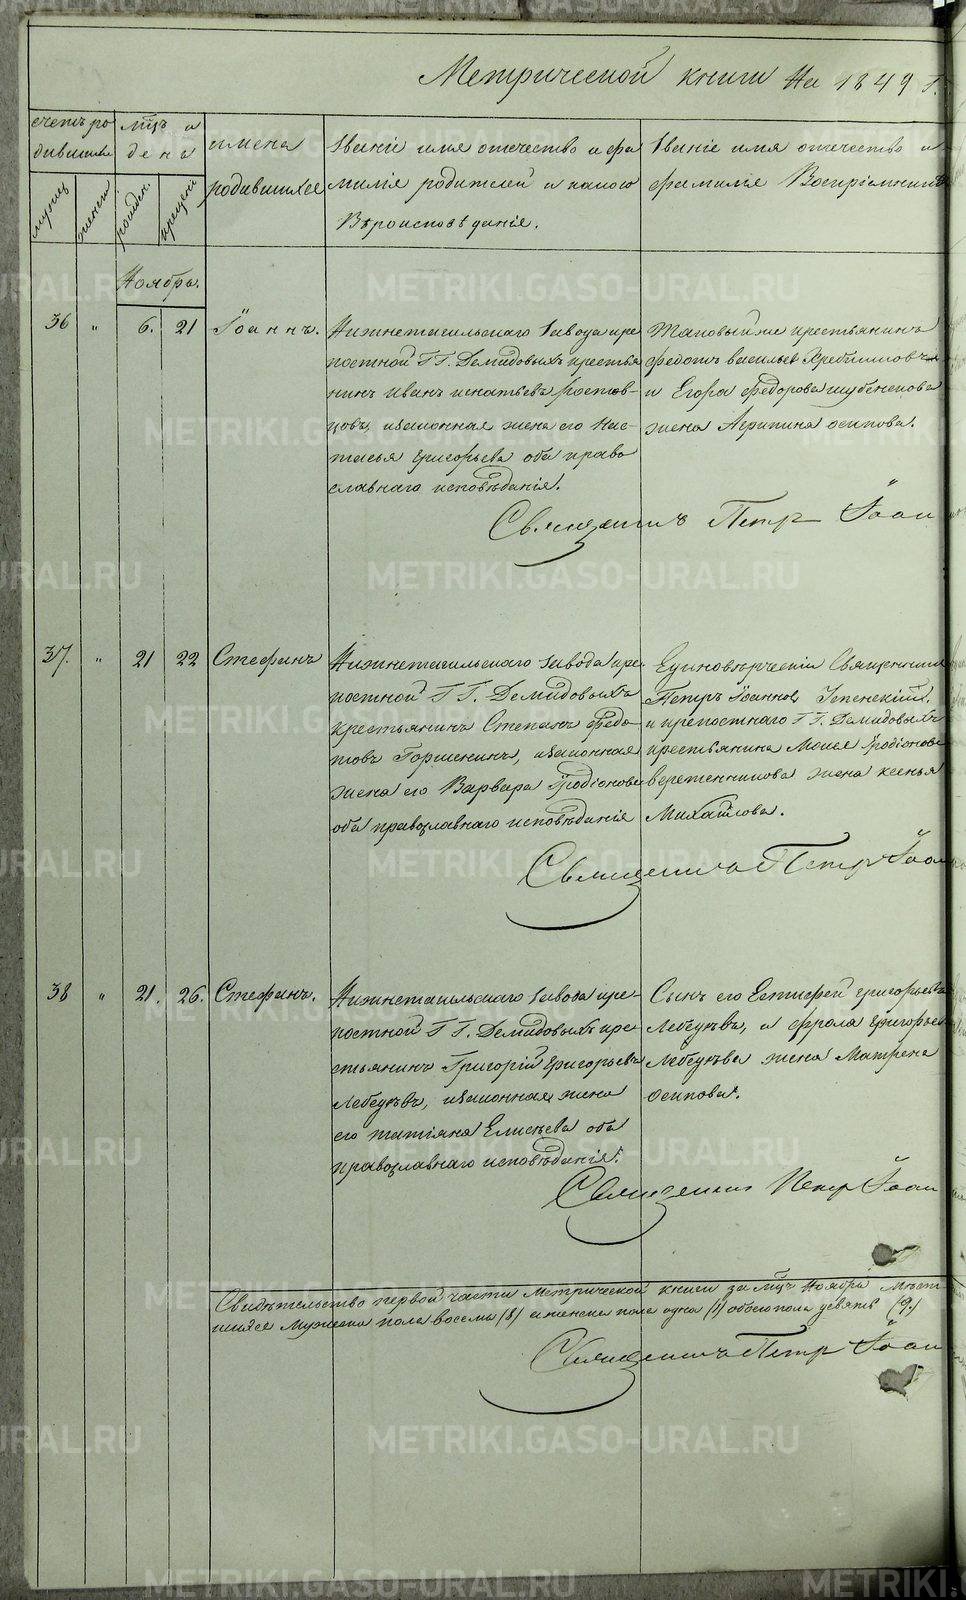 Метрической книги на 1849 г.
счетъ ро
дившихся
мцъ и
день
имена
родившихся
Званіе имя отечество и фа
миліе родителей и какого
Вѣроисповѣданія.
Званіе имя отечество и
фамилія Воспріемниковъ
мужеск
женск
рожден.
крещен
Ноябрь.
36 " 6. 21 Іоаннъ.
Нижнетагильскаго завода кре
постной Г.Г. Демидовыхъ крестья
нинъ Иванъ Игнатьевъ
законная жена его Нас-
тасья Григорьева оба право
славнаго исповѣданія.
Таковый же крестьянинъ
Федотъ Васильев
и Егора Федорова
жена Агрипина Осипова.
Священникъ Петр Іоан
37. " 21 22 Стефанъ
Нижнетагильскаго завода кре
постной Г.Г. Демидовыхъ
крестьянинъ Степанъ Федо-
товъ Горшенинъ, законная
жена его Варвара Родіонова
оба православнаго исповѣданія
Единовѣрческій Священник
Петръ Іоаннов Успенскій.
и крепостнаго Г.Г. Демидовыхъ
крестьянина Моисея Родіонова
Веретенникова жена Ксенья
Михайлова.
Священникъ Петр Іоан
38 " 21. 26. Стефанъ.
Нижнетагильскаго завода кре-
постной Г.Г. Демидовыхъ кре-
стьянинъ Григорій Григорьевъ
законная жена
его татіяна Елисѣева оба
православнаго исповѣданія.
Сынъ его Григорьевъ
и Фрола Григорьев
жена Матрена
Осипова.
Священникъ Петр Іоан
Свидѣтельство первой части Метрической книги за мцъ Ноябрь
Мужеска пола восемь (8) а женска пола одна (1) обоего пола девять (9)
Священникъ Петр Іоан
METRIKI.GASO-URAL.RU